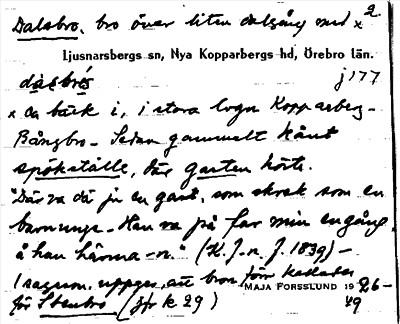 Dalsbro, bro över liten dalgång med x 2
Ljusnarsbergs sn, Nya Kopparbergs hd, Örebro län.
dàlsbró j 177
x en bäck i, i stora logn Kopparberg-
Bångbro- Sedan gammalt känt
spökställe, där gasten hörts.
"Där va dä ju en gast, som skrek som en
barnunge- Han va på far min en gång,
å han härma -n." (K. J. n. f. 1839) -
I sagesm. uppges, att bron förr kallades
MAJA FORSSLUND 1926-
för Stenbro (jfr k 29) 29